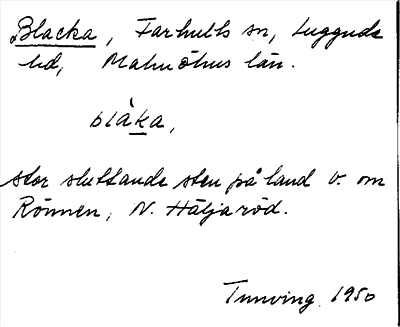 Blacka, Farhults sn, Luggude
hd, Malmöhus län.
blåka,
stor sluttande sten på land v. om
Rönnen, N. Häljaröd.
Tunving 1950